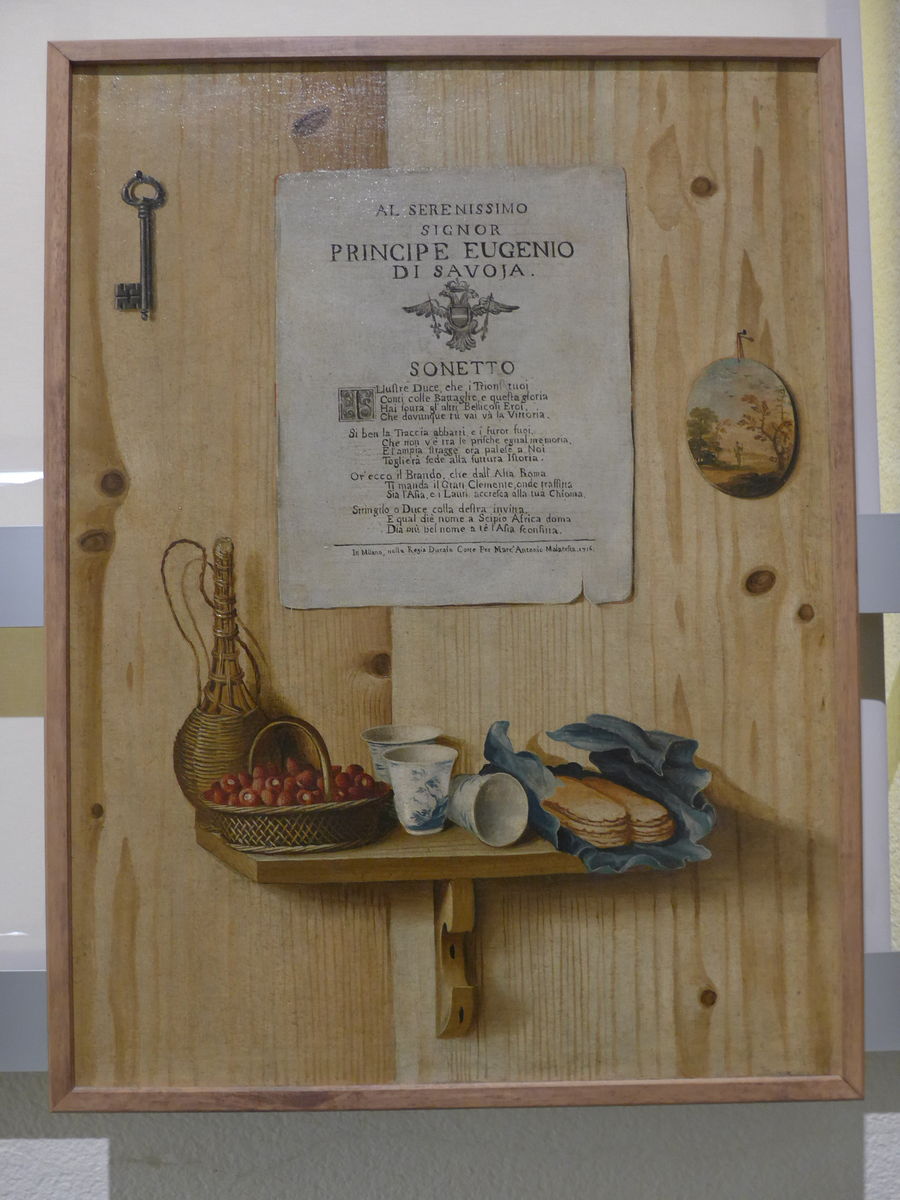 AL SERENISSIMO
SIGNOR
PRINCIPE EUGENIO
DI SAVOJA.
SONETTO
Illustre Duce, che i Trionfi tuoi
Conti colle Battaglie, e questa gloria
Hai sovra gl'altri Bellicosi Eroi,
Che dovunque tù vai và la Vittoria.
Si ben la Traccia abbatti, e i furor suoi,
Che non v'è tra le prische egual memoria,
E l'ampia stragge ora palese a Noi
Toglierà fede alla futura Istoria.
Or' ecco il Brando, che dall'Alta Roma
Ti manda il Gran Clemente, onde
Sia l'Asia, e i Lauri accresca alla tua Chioma.
Stringilo o Duce colla destra invitta,
E qual diè nome a Scipio Africa doma
Dia più bel nome a tè l'Asia sconfitta.
In Milano, nella Regia Ducale Corte Per Marc'Antonio Malatesta. 1716.